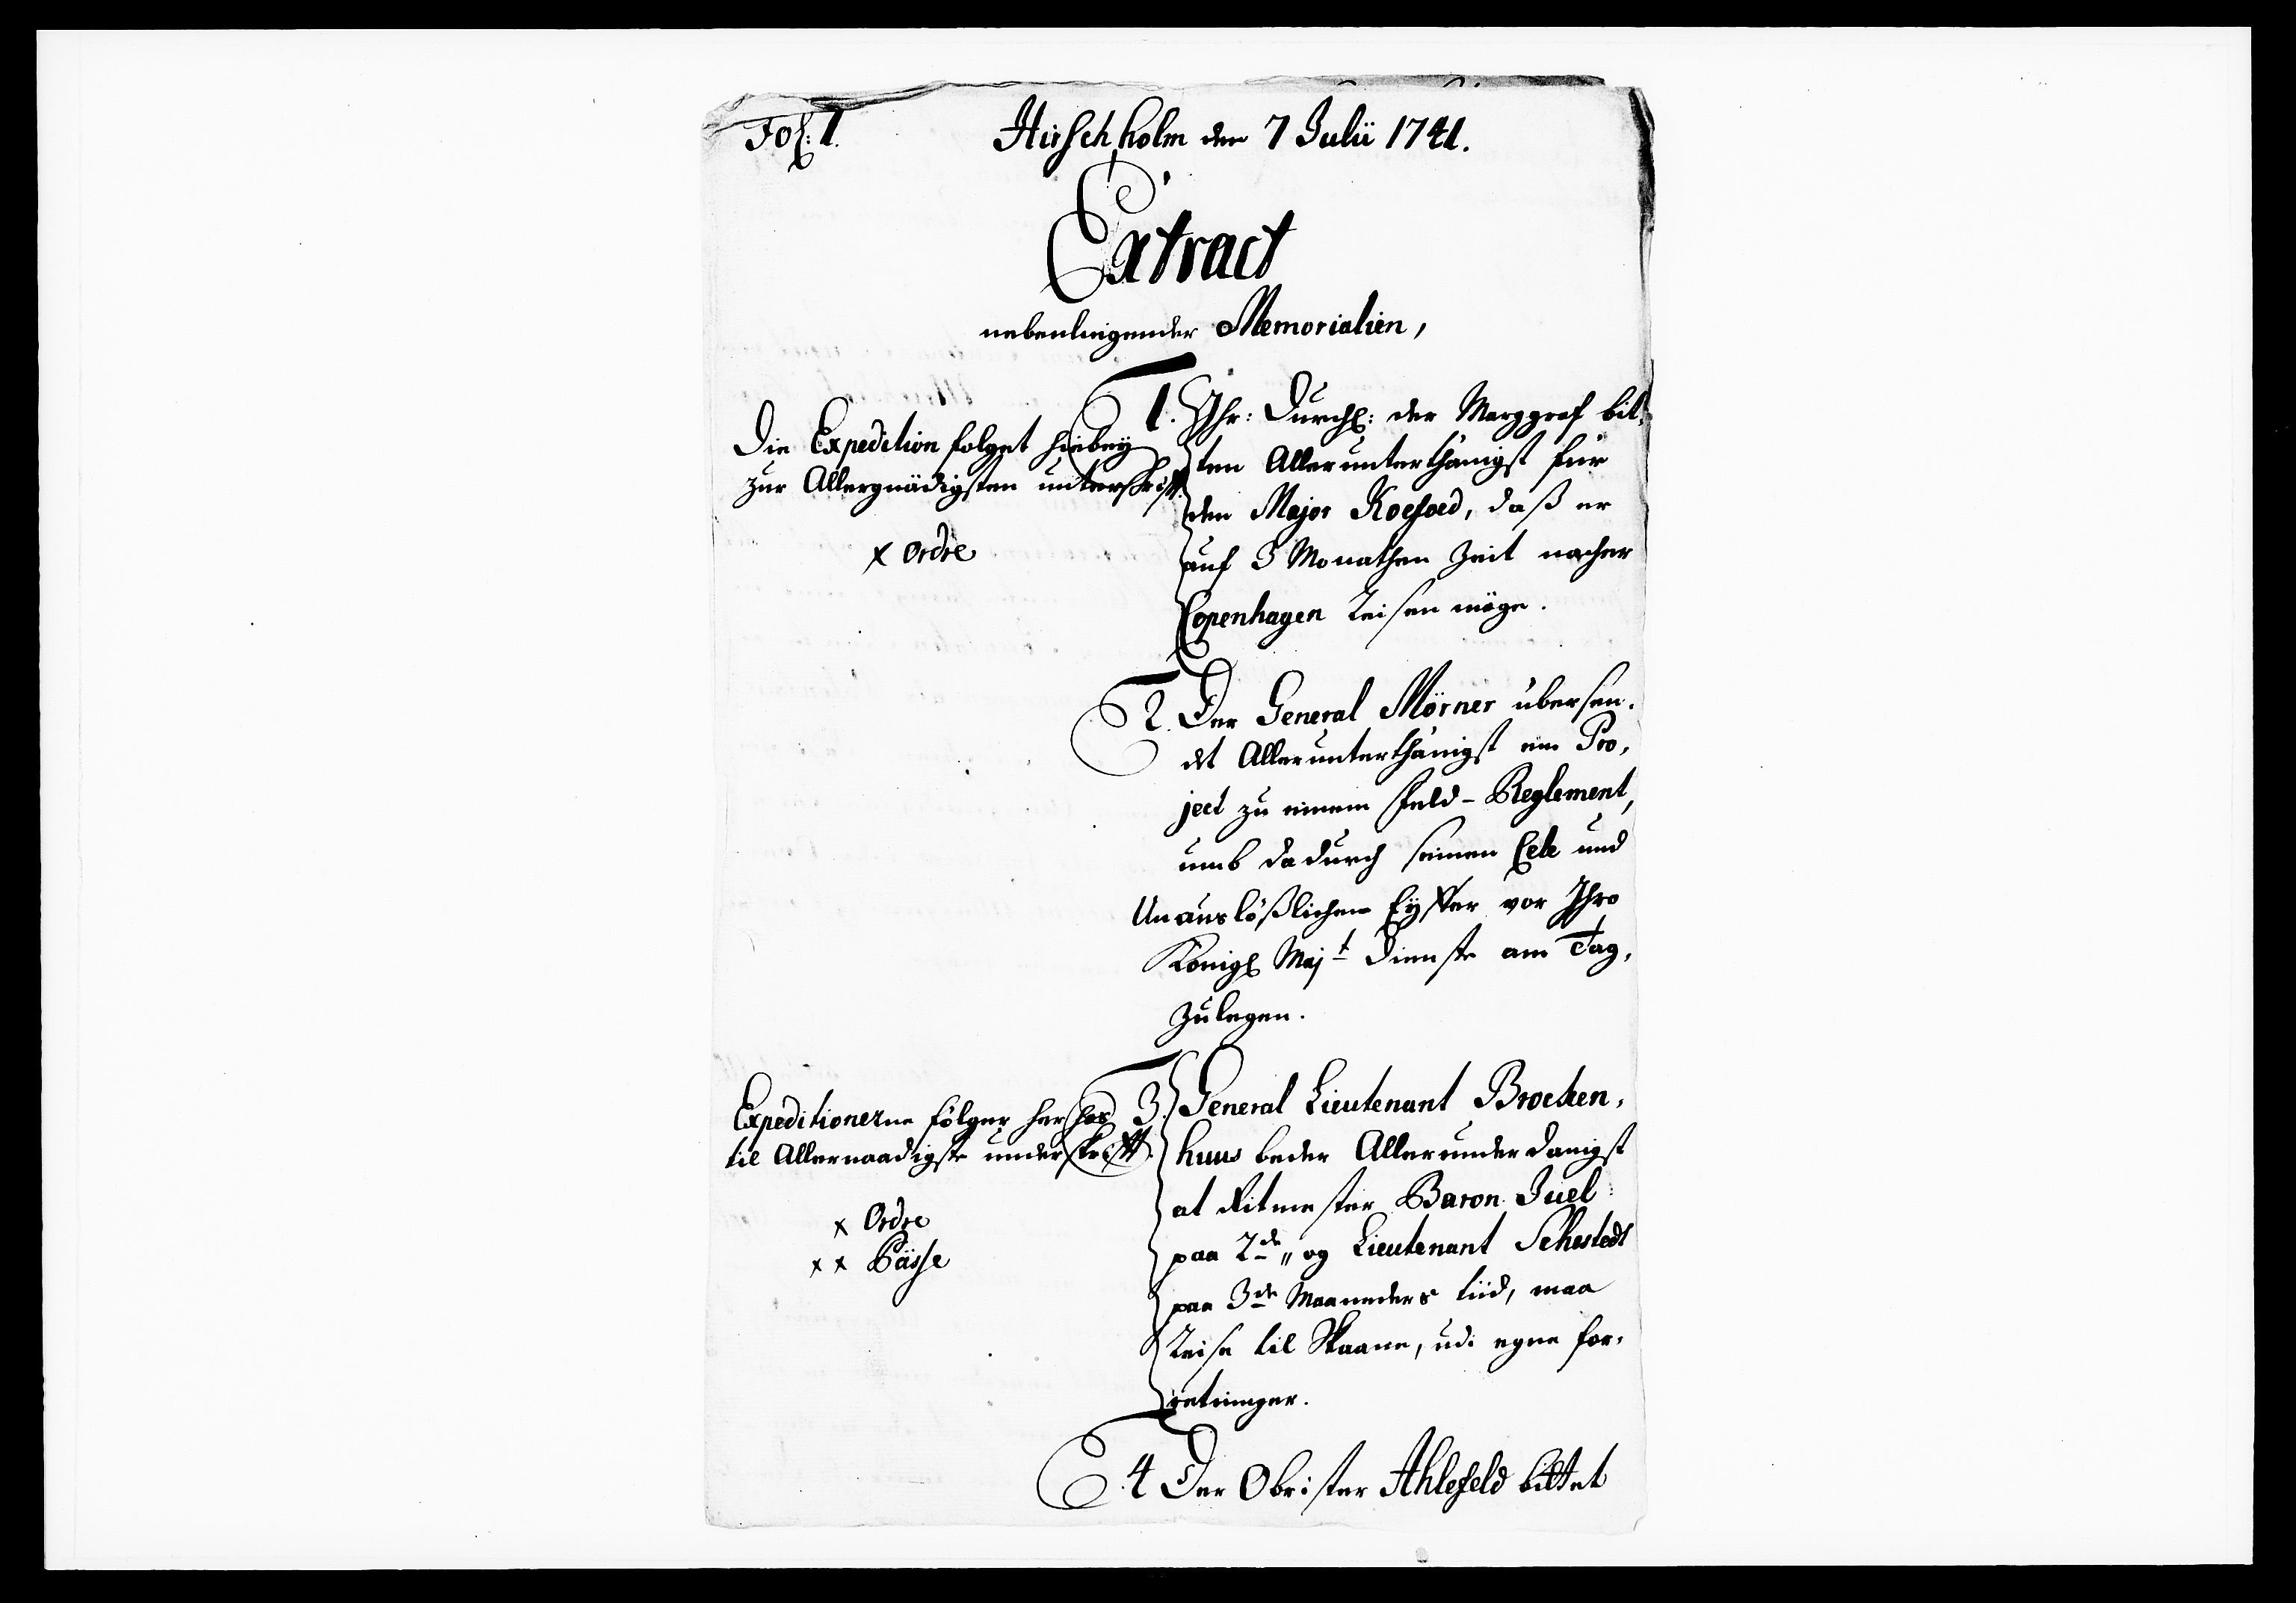 Fol: 1.
Hirschholm den 7 Julii 1741.
Extract
nebenliegender Memorialien,
Die Expedition folget hiebey
zur Allergnädigsten unterschrifft.
x Ordre
1. Ihr: Durchl: der Marggraf bit-
ten Allerunterthänigst für
den Major Koefoed, daß er
auf 3 Monathen Zeit nacher
Copenhagen Reisen möge.
2. Der General Mörner übersen-
det Allerunterthänigst ein Pro-
ject zu einem Feld-Reglement,
umb dadurch seinen und
Unauslößlichen Eyffer vor Ihro
Königl Majt Dienste am Tag-
zulegen.
Expeditionerne fölger her hos
til Allernaadigste underskrifft.
x Ordre
x x Pässe
3. General Lieutenant Brocken-
huus beder Allerunderdanigst
at Ritmester Baron Juel
paa 2de og Lieutenant Sehestedt
paa 3de Maaneders tiid, maa
Reise til Skaane, udi egne for-
retninger.
4 Der Obrister Ahlefeld bittet